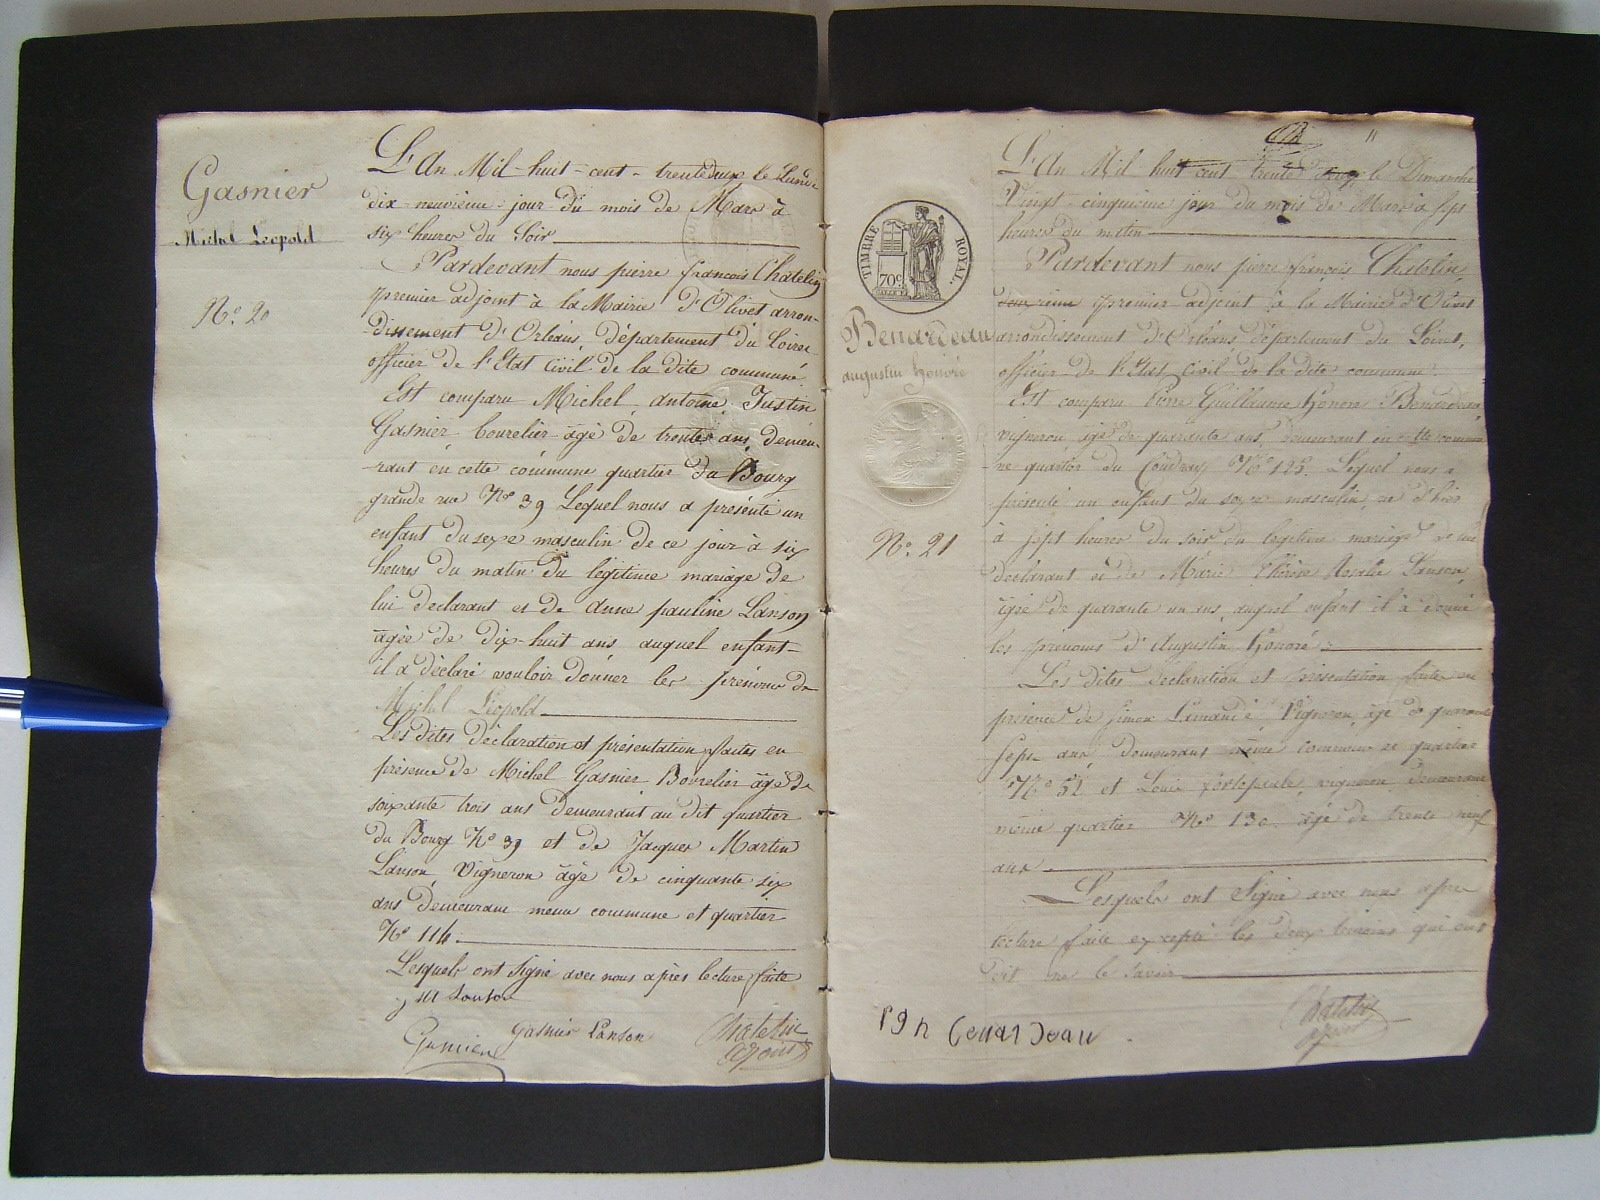 Gasnier
Michel Leopold
N° 20
L'An Mil-huit-cent-trente deux le Lundi
dix-neuvième jour du mois de Mars à
six heures du Soir
Pardevant nous pierre françois Chatelin
premier adjoint à la Mairie d'Olivet arron-
dissement d'Orléans, département du Loiret
officier de l'Etat civil de la dite commune.
Est comparu Michel antoine Justin
Gasnier bourelier âgé de trente ans, demeu-
rant en cette commune quartier du Bourg
grande rue N° 39 Lequel nous a présenté un
enfant du sexe masculin de ce jour à six
heures du matin du légitime mariage de
lui declarant et de anne pauline Lanson
âgée de dix-huit ans auquel enfant
il a déclaré vouloir donner les prénoms de
Michel Léopold
Les dites déclaration et présentation faites en
présence de Michel Gasnier Bourelier âgé de
soixante trois ans demeurant au dit quartier
du Bourg N° 39 et de Jacques Martin
Lanson Vigneron âgé de cinquante six
ans demeurant meme commune et quartier
N° 114.
Lesquels ont Signé avec nous après lecture faite
j m Lanson
Gasnier
gasnier Lanson
Chatelin
adjoint
11
TIMBRE ROYAL.
70c
Benardeau
augustin honoré
N° 21
L'An Mil huit cent trente deux le Dimanche
Vingt-cinquième jour du mois de Mars à sept
heures du matin
Pardevant nous pierre françois Chatelin
deuxième premier adjoint à la Mairie d'Olivet
arrondissement d'Orléans département du Loiret,
officier de l'Etat Civil de la dite commune.
Est comparu Pierre Guillaume honoré Benardeau
vigneron âgé de quarante ans, demeurant en cette commu-
ne quartier du Coudray N° 125. Lequel nous a
présenté un enfant du sexe masculin, né d'hier
à sept heures du soir du légitime mariage de lui
declarant et de Marie Thérèse Rosalie Lanson,
âgée de quarante un ans, auquel enfant il a donné
les prénoms d'Augustin honoré
Les dites déclaration et présentation faites en
présence de Simon Vigneron, âgé de quarante
sept ans, demeurant même commune et quartier
N° 52 et Louis vigneron, demeurant
même quartier N° 130. âgé de trente neuf
ans
Lesquels ont Signé avec nous après
lecture faite excepté les deux témoins qui ont
dit ne le savoir
Chatelin
adjoint